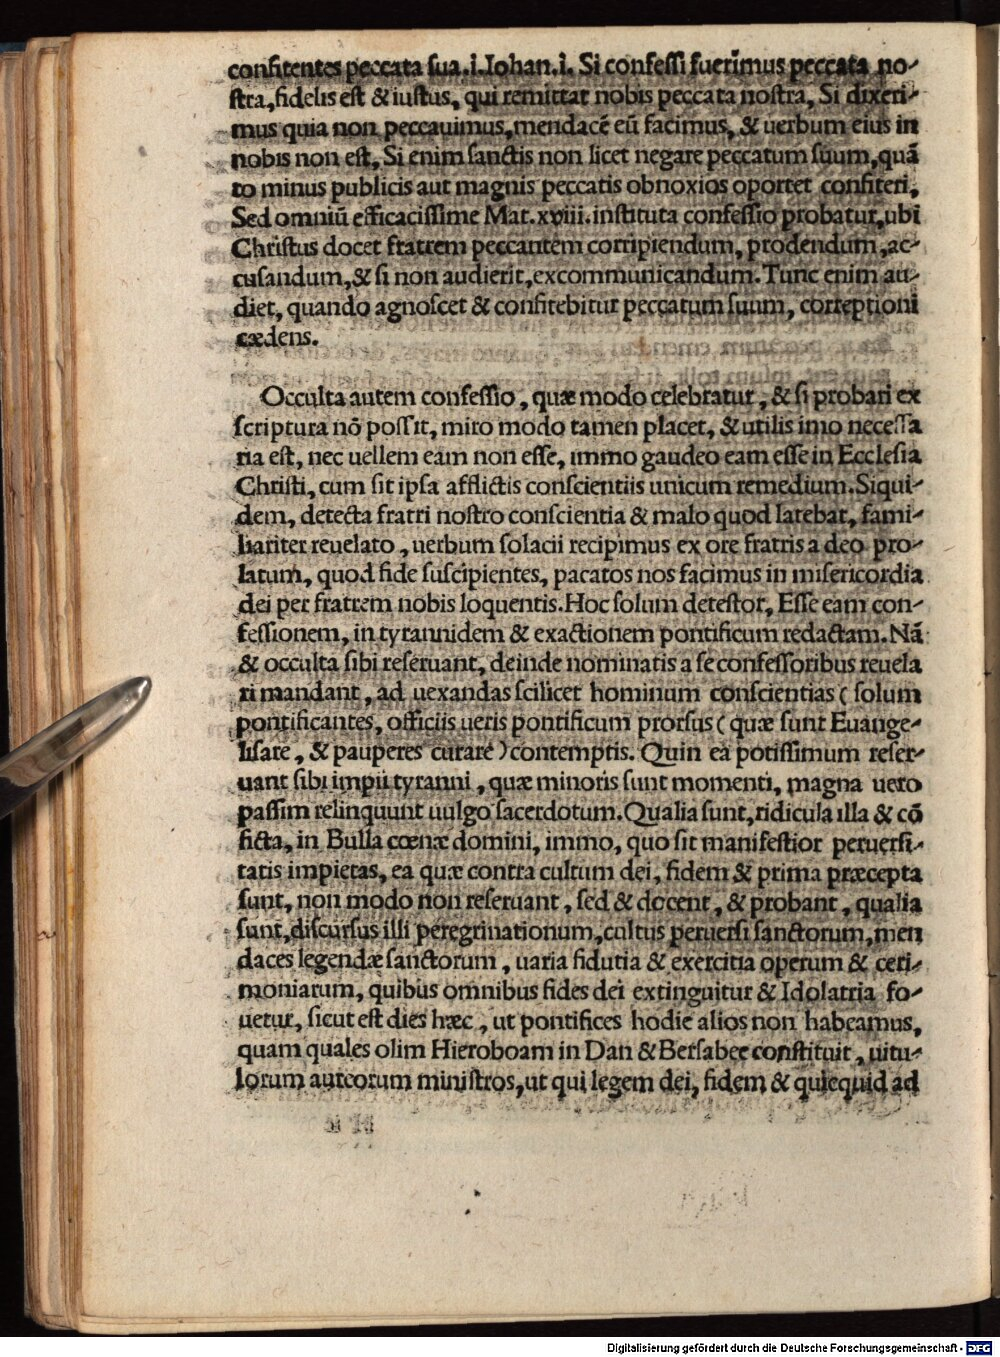 confitentes peccata sua.i.Iohan.i. Si confessi fuerimus peccata no-
stra, fidelis est & iustus, qui remittat nobis peccata nostra, Si dixeri-
mus quia non peccauimus, mendacē eū facimus, & uerbum eius in
nobis non est, Si enim sanctis non licet negare peccatum suum, quā
to minus publicis aut magnis peccatis obnoxios oportet confiteri,
Sed omniū efficacissime Mat.xviii.instituta confessio probatur, ubi
Christus docet fratrem peccantem corripiendum, prodendum, ac-
cusandum, & si non audierit, excommunicandum. Tunc enim au-
diet, quando agnoscet & confitebitur peccatum suum, correptioni
cædens.
Occulta autem confessio, quæ modo celebratur, & si probari ex
scriptura nō possit, miro modo tamen placet, & utilis imo necessa
ria est, nec uellem eam non esse, immo gaudeo eam esse in Ecclesia
Christi, cum sit ipsa afflictis conscientiis unicum remedium. Siqui-
dem, detecta fratri nostro conscientia & malo quod latebat, fami-
liariter reuelato, uerbum solacii recipimus ex ore fratris a deo pro-
latum, quod fide suscipientes, pacatos nos facimus in misericordia
dei per fratrem nobis loquentis. Hoc solum detestor, Esse eam con-
fessionem, in tyrannidem & exactionem pontificum redactam. Nā
& occulta sibi reseruant, deinde nominatis a se confessoribus reuela
ri mandant, ad uexandas scilicet hominum conscientias ( solum
pontificantes, officiis ueris pontificum prorsus ( quæ sunt Euange-
lisare, & pauperes curare ) contemptis. Quin ea potissimum reser-
uant sibi impii tyranni, quæ minoris sunt momenti, magna uero
passim relinquunt uulgo sacerdotum. Qualia sunt, ridicula illa & cō
ficta, in Bulla cœnæ domini, immo, quo sit manifestior peruersi-
tatis impietas, ea quæ contra cultum dei, fidem & prima præcepta
sunt, non modo non reseruant, sed & docent, & probant, qualia
sunt, discursus illi peregrinationum, cultus peruersi sanctorum, men
daces legendæ sanctorum, uaria fidutia & exercitia operum & ceri-
moniarum, quibus omnibus fides dei extinguitur & Idolatria fo-
uetur, sicut est dies hæc, ut pontifices hodie alios non habeamus,
quam quales olim Hieroboam in Dan & Bersabee constituit, uitu-
lorum aureorum ministros, ut qui legem dei, fidem & quicquid ad
Digitalisierung gefördert durch die Deutsche Forschungsgemeinschaft - DFG